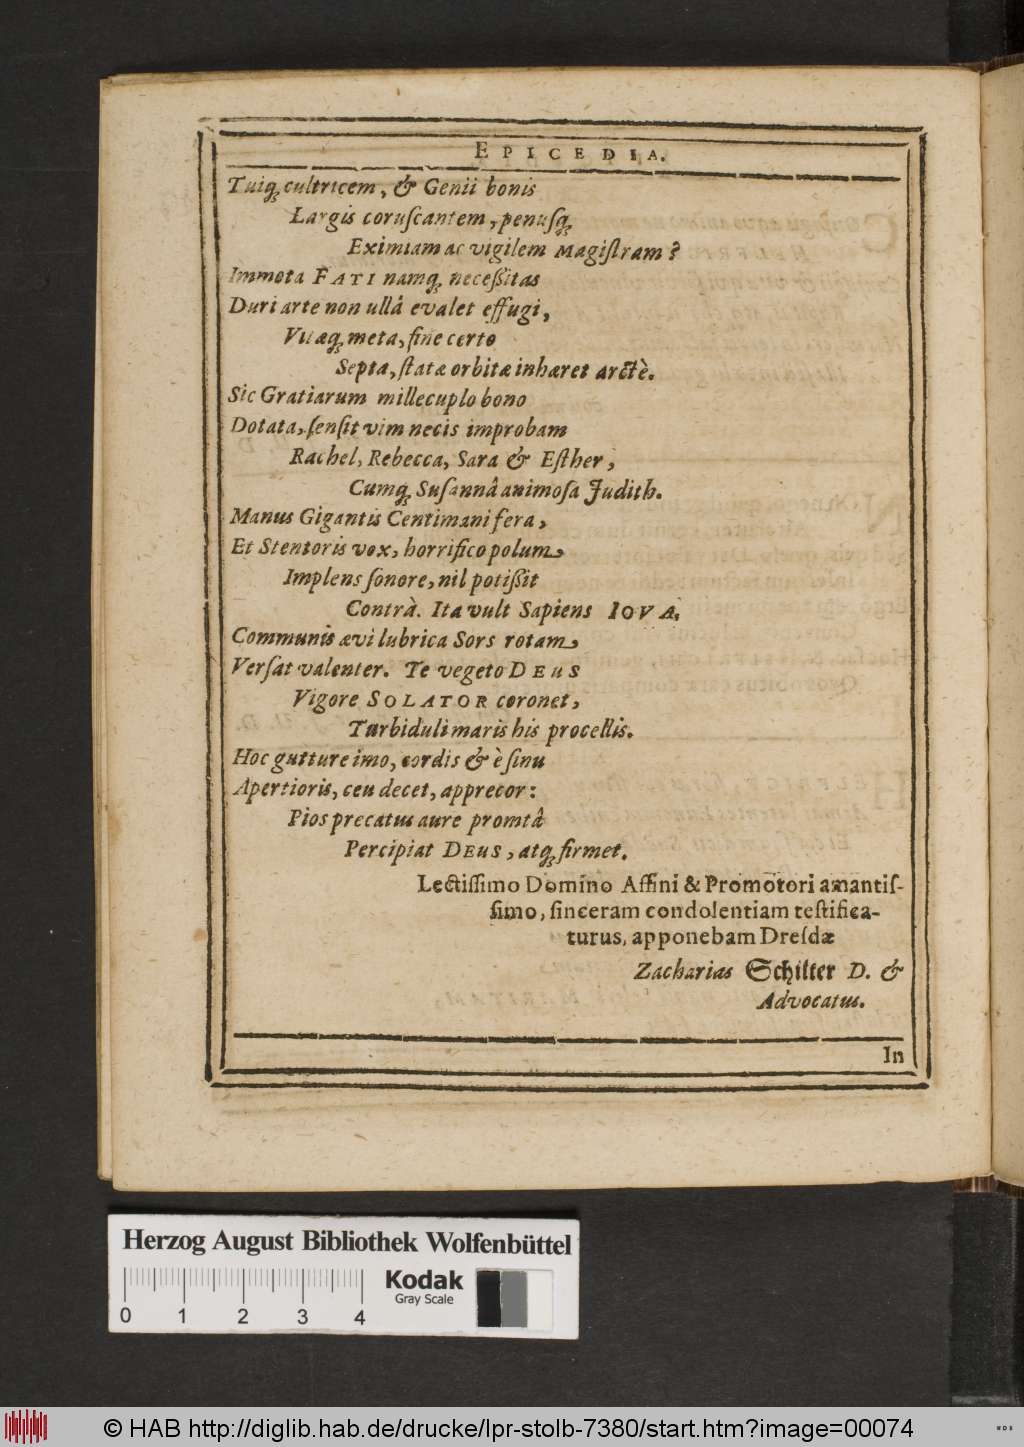 EPICEDIA.
Tuiq́; cultricem, & Genii bonis
Largis coruſcantem, penuſq́;
Eximiam ac vigilem Magiſtram?
Immota FATI namq́; neceßitas
Duri arte non ullâ evalet effugi,
Vitæq́; meta, fine certo
Septa, ſtatæ orbitæ inhæret arctè.
Sic Gratiarum millecuplo bono
Dotata, ſenſit vim necis improbam
Rachel, Rebecca, Sara & Eſther,
Cumq́; Suſannâ animoſa Judith.
Manus Gigantis Centimani fera,
Et Stentoris vox, horrifico polum
Implens ſonore, nil potißit
Contrà. Ita vult Sapiens IOVA.
Communis ævi lubrica Sors rotam
Verſat valenter. Te vegeto DEuS
Vigore SOLATOR coronet,
Turbiduli maris his procellis.
Hoc gutture imo, cordis & è ſinu
Apertioris, ceu decet, apprecor:
Pios precatus aure promtâ
Percipiat DEuS, atq́; firmet.
Lectiſſimo Domino Affini & Promotori amantiſ-
ſimo, ſinceram condolentiam teſtifica-
turus, apponebam Dreſdæ
Zacharias Schilter D. &
Advocatus.
In
Herzog August Bibliothek Wolfenbüttel
Kodak
Gray Scale
0 1 2 3 4
© HAB http://diglib.hab.de/drucke/lpr-stolb-7380/start.htm?image=00074